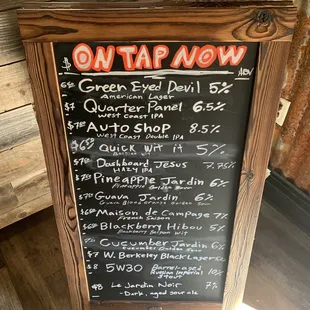 ON TAP NOW
ABV
Green Eyed Devil 5%
American Lager
$7 Quarter Panel 6.5%
West Coast IPA
Auto Shop 8.5%
West Coast Double IPA
Quick Wit it 5%
Dashboard Jesus 7.75%
Hazy IPA
Pineapple Jardin 6%
Pineapple Golden Sour
Guava Jardin 6%
Guava Blood Orange Golden Sour
Maison de Campage 7%
French Saison
Blackberry Hibou 5%
Blackberry Belgian Wit
Cucumber Jardin 6%
Cucumber Golden Sour
$7 W. Berkeley Black Lager
$8 5W30 Barrel-aged
Russian Imperial 10%
Stout
$8 Le Jardin Noir 7%
-Dark, aged sour ale